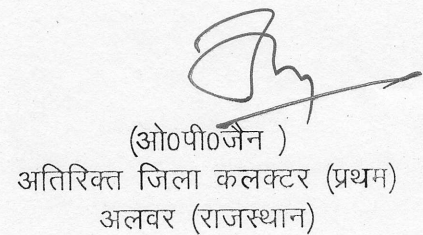 (ओ0पी0जैन )
अतिरिक्त जिला कलक्टर (प्रथम)
अलवर (राजस्थान)